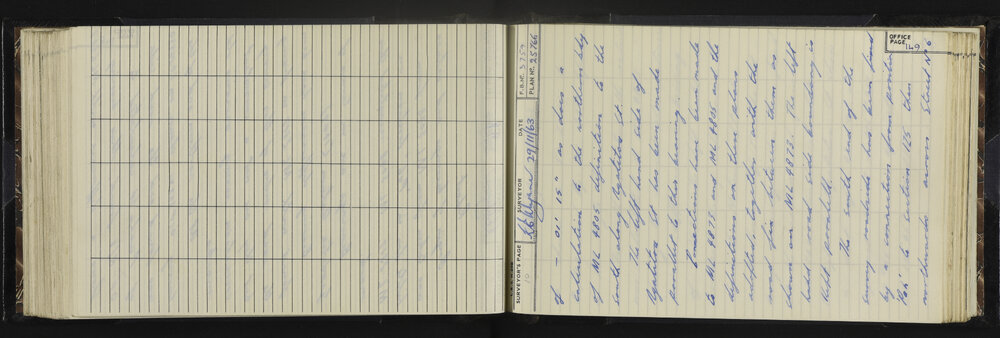 OFFICE PAGE 149
SURVEYOR'S PAGE 10
SURVEYOR
DATE 29/11/63
F.B. No. 3759
PLAN No. 25766
of – 01' 15" as does a
calculation to the northern bdy
of ML 4805 definition to the
south along Lyttelton St.
The left hand side of
Lyttelton St has been made
parallel to this bearing.
Connections have been made
to ML 4875 and ML 4805 and the
definitions on these plans
adopted, together with the
road fix between them as
shown on ML 4873. The left
hand road side boundary is
kept parallel.
The south end of the
survey roadside has been fixed
by a connection from
'Pah' to section 165 then
northwards across Street No 6